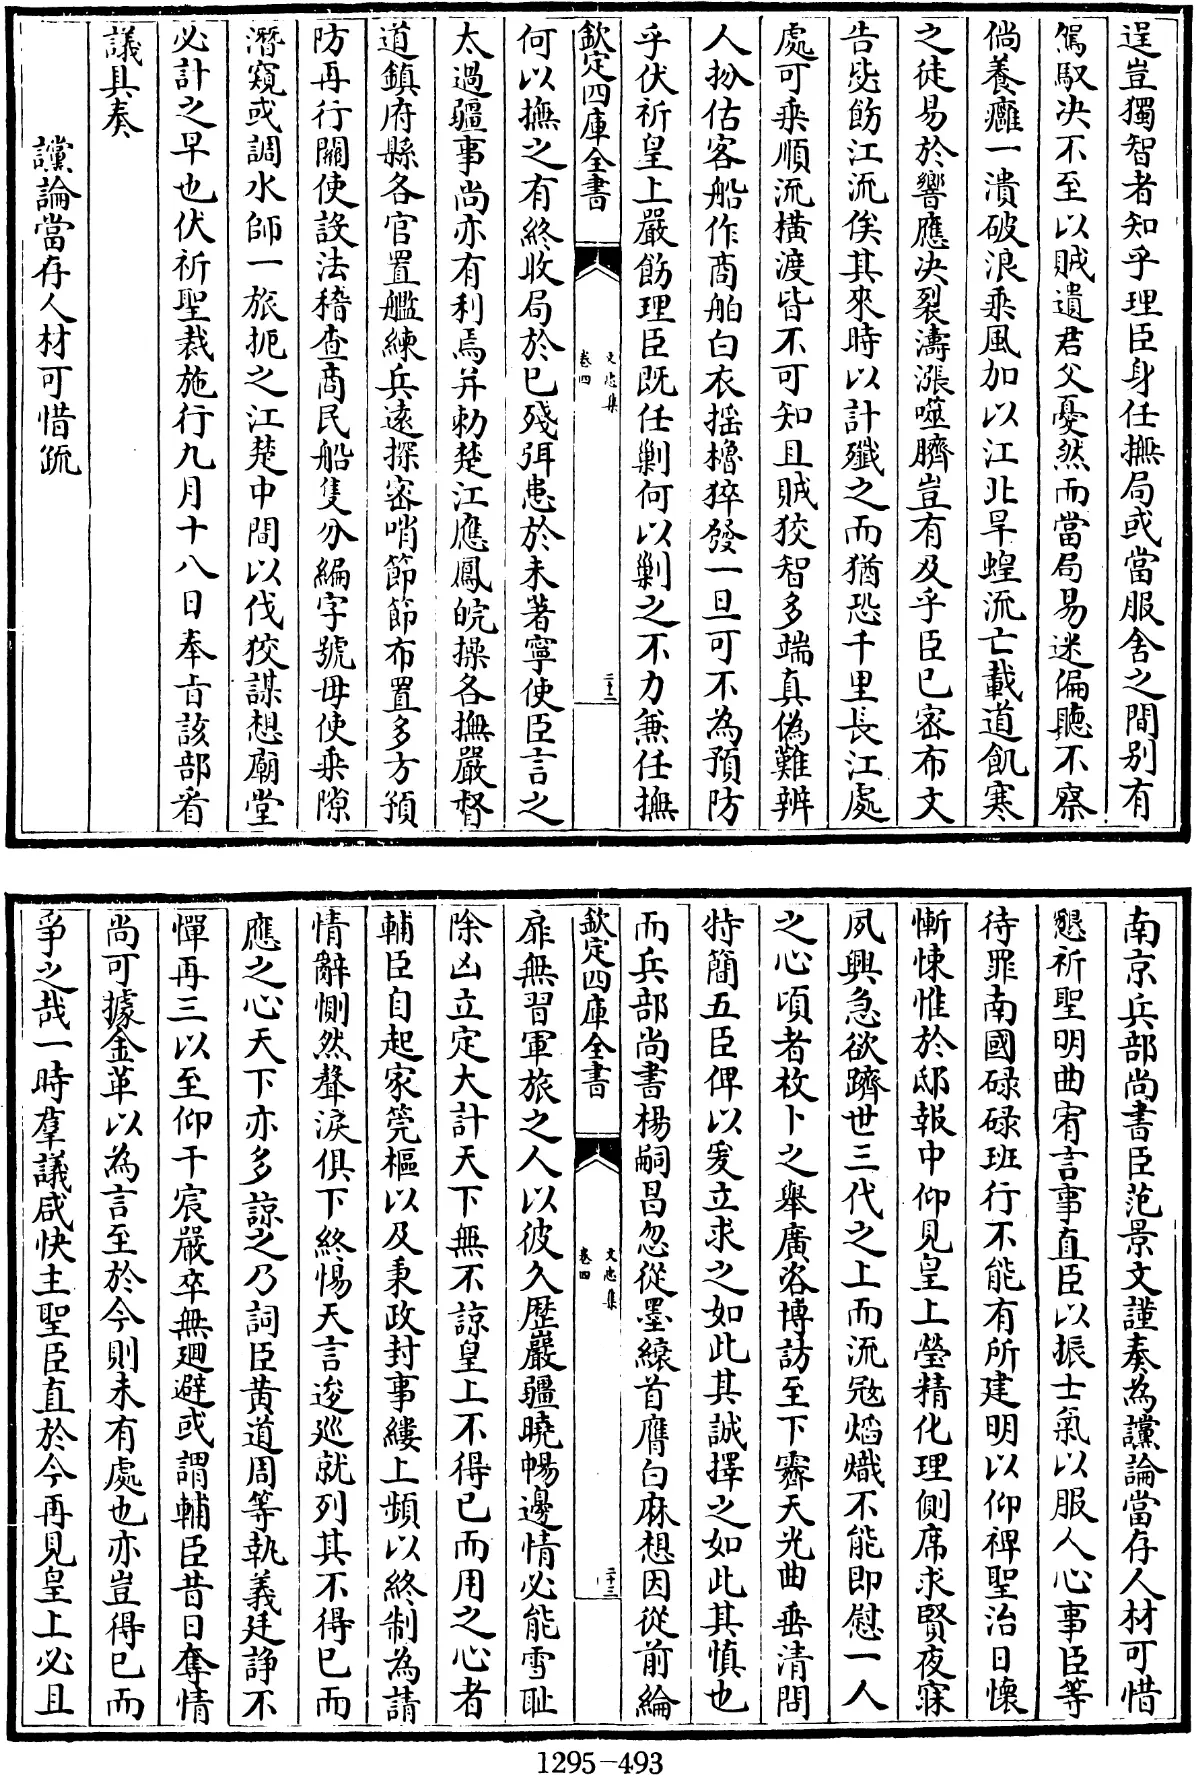 逞豈獨智者知乎理臣身任撫局或當服舍之間别有
駕馭决不至以賊遺君父憂然而當局易迷偏聽不察
倘養癰一潰破浪乘風加以江北旱蝗流亡載道飢寒
之徒易於響應决裂濤漲噬臍豈有及乎臣已密布文
告毖飭江流俟其來時以計殲之而猶恐千里長江處
處可乘順流橫渡皆不可知且賊狡智多端真偽難辨
人扮估客船作商舶白衣揺櫓猝發一旦可不為預防
乎伏祈皇上嚴飭理臣既任剿何以剿之不力兼任撫
欽定四庫全書
文忠集
卷四
二十二
何以撫之有終收局於已殘弭患於未著寧使臣言之
太過疆事尚亦有利焉并勅楚江應鳳皖操各撫嚴督
道鎮府縣各官置艦練兵遠探密哨節節布置多方預
防再行關使設法稽查商民船隻分編字號毋使乘隙
潛窺或調水師一旅扼之江楚中間以伐狡謀想廟堂
必計之早也伏祈聖裁施行九月十八日奉㫖該部看
議具奏
讜論當存人材可惜疏
南京兵部尚書臣范景文謹奏為讜論當存人材可惜
懇祈聖明曲宥言事直臣以振士氣以服人心事臣等
待罪南國碌碌班行不能有所建明以仰裨聖治日懷
慚悚惟於邸報中仰見皇上瑩精化理側席求賢夜寐
夙興急欲躋世三代之上而流冦熖熾不能即慰一人
之心頃者枚卜之舉廣咨博訪至下霽天光曲垂清問
特簡五臣俾以爰立求之如此其誠擇之如此其慎也
而兵部尚書楊嗣昌忽從墨縗首膺白麻想因從前綸
欽定四庫全書
文忠集
卷四
二十三
扉無習軍旅之人以彼久歷巖疆曉暢邊情必能雪恥
除凶立定大計天下無不諒皇上不得已而用之心者
輔臣自起家筦樞以及秉政封事縷上頻以終制為請
情辭惻然聲淚俱下終惕天言逡巡就列其不得已而
應之心天下亦多諒之乃詞臣黄道周等執義廷諍不
憚再三以至仰干宸嚴卒無廻避或謂輔臣昔日奪情
尚可據金革以為言至於今則未有處也亦豈得已而
爭之哉一時羣議咸快主聖臣直於今再見皇上必且
1295-493